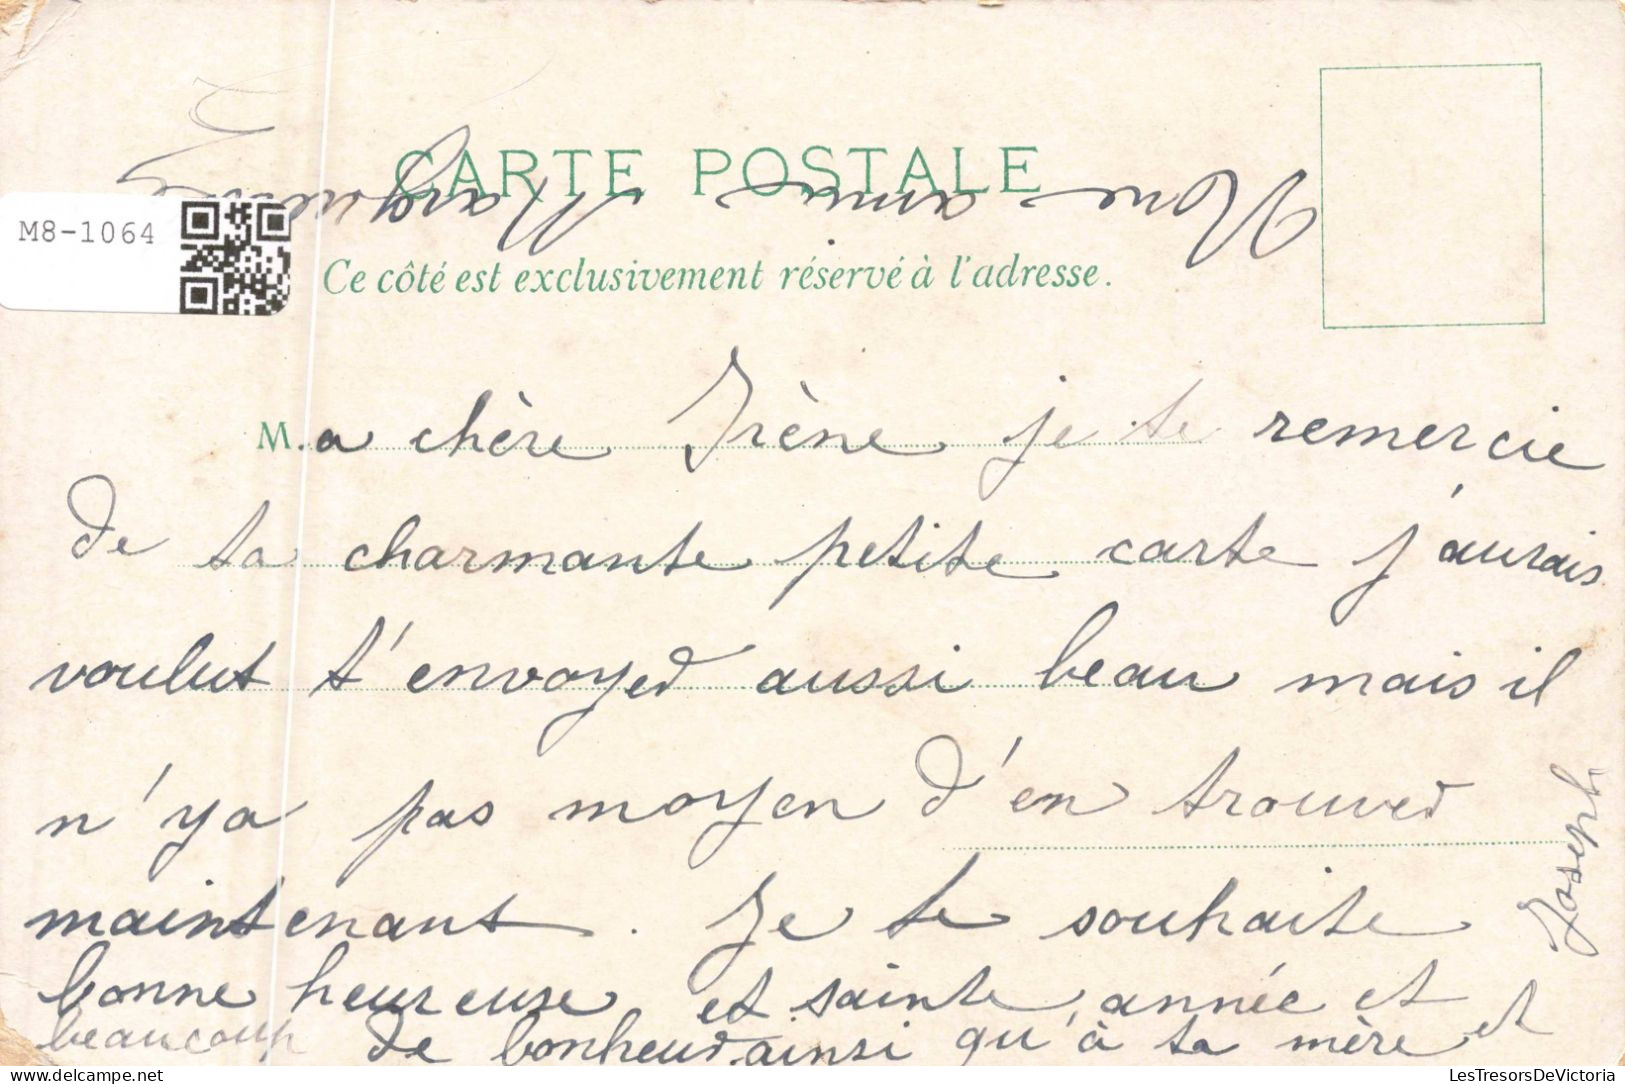 CARTE POSTALE
Ce côté est exclusivement réservé à l'adresse.
M8-1064
M.a chère Irène je te remercie
de ta charmante petite carte j'aurais
voulut t'envoyer aussi beau mais il
n'ya pas moyen d'en trouver
maintenant. Je te souhaite
bonne heureuse et sainte année et
beaucoup de bonheur ainsi qu'à ta mère et
Joseph
Ton ami
LesTresorsDeVictoria.com
www.delcampe.net